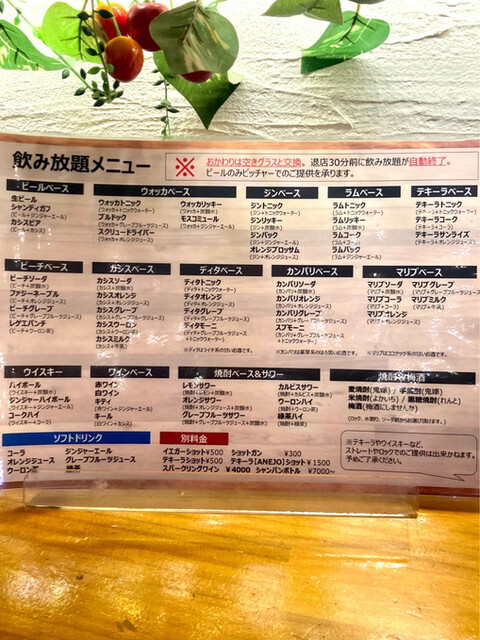 飲み放題メニュー
※
おかわりは空きグラスと交換。退店30分前に飲み放題が自動終了。
ビールのみピッチャーでのご提供を承ります。
ビールベース
生ビール
シャンディガフ
(ビール+ジンジャーエール)
カシスビア
(ビール+カシス)
ウォッカベース
ウォッカトニック
(ウォッカ+トニックウォーター)
ブルドック
(ウォッカ+グレープフルーツジュース)
スクリュードライバー
(ウォッカ+オレンジジュース)
ウォッカリッキー
(ウォッカ+炭酸水)
モスコミュール
(ウォッカ+ジンジャーエール)
ジンベース
ジントニック
(ジン+トニックウォーター)
ジンリッキー
(ジン+炭酸水)
ジンバック
(ジン+ジンジャーエール)
オレンジブロッサム
(ジン+オレンジジュース)
ラムベース
ラムトニック
(ラム+トニックウォーター)
ラムリッキー
(ラム+炭酸水)
ラムコーク
(ラム+コーラ)
ラムバック
(ラム+ジンジャーエール)
テキーラベース
テキーラトニック
(テキーラ+トニックウォーター)
テキーラコーク
(テキーラ+コーラ)
テキーラサンライズ
(テキーラ+オレンジジュース)
ピーチベース
ピーチソーダ
(ピーチ+炭酸水)
ファジーネーブル
(ピーチ+オレンジジュース)
ピーチグレープ
(ピーチ+グレープフルーツジュース)
レゲエパンチ
(ピーチ+ウーロン茶)
カシスベース
カシスソーダ
(カシス+炭酸水)
カシスオレンジ
(カシス+オレンジジュース)
カシスグレープ
(カシス+グレープフルーツジュース)
カシスウーロン
(カシス+ウーロン茶)
カシスミルク
(カシス+牛乳)
ディタベース
ディタトニック
(ディタ+トニックウォーター)
ディタオレンジ
(ディタ+オレンジジュース)
ディタグレープ
(ディタ+グレープフルーツジュース)
ディタモーニ
(ディタ+グレープフルーツジュース
+トニックウォーター)
※ディタはライチ系の甘いお酒です。
カンパリベース
カンパリソーダ
(カンパリ+炭酸水)
カンパリオレンジ
(カンパリ+オレンジジュース)
カンパリグレープ
(カンパリ+グレープフルーツジュース)
スプモーニ
(カンパリ+グレープフルーツジュース
+トニックウォーター)
※カンパリは薬草系のほろ苦いお酒です。
マリブベース
マリブソーダ
(マリブ+炭酸水)
マリブコーラ
(マリブ+コーラ)
マリブオレンジ
(マリブ+オレンジジュース)
マリブグレープ
(マリブ+グレープフルーツジュース)
マリブミルク
(マリブ+牛乳)
※マリブはココナッツ系の甘いお酒です。
ウイスキー
ハイボール
(ウイスキー+炭酸水)
ジンジャーハイボール
(ウイスキー+ジンジャーエール)
コークハイ
(ウイスキー+コーラ)
ワインベース
赤ワイン
白ワイン
キティ
(赤ワイン+ジンジャーエール)
キール
(白ワイン+カシス)
焼酎ベース&サワー
レモンサワー
(焼酎+レモン+炭酸水)
オレンジサワー
(焼酎+オレンジジュース+炭酸水)
グレープフルーツサワー
(焼酎+グレープフルーツジュース+炭酸水)
カルピスサワー
(焼酎+カルピス+炭酸水)
ウーロンハイ
(焼酎+ウーロン茶)
緑茶ハイ
(焼酎+緑茶)
焼酎&梅酒
麦焼酎(鬼塚) / 芋焼酎(鬼塚)
米焼酎(よかいち) / 黒糖焼酎(れんと)
梅酒(梅酒にしませんか)
ソフトドリンク
コーラ
オレンジジュース
ウーロン茶
ジンジャーエール
グレープフルーツジュース
緑茶
別料金
イエガーショット¥500 ショットガン ¥300
テキーラショット¥500 テキーラ(ANEJO)ショット¥1500
スパークリングワイン ¥4000 シャンパンボトル ¥7000~
※テキーラやウイスキーなど、
ストレートやロックでのご提供は出来かねます。
予めご了承ください。